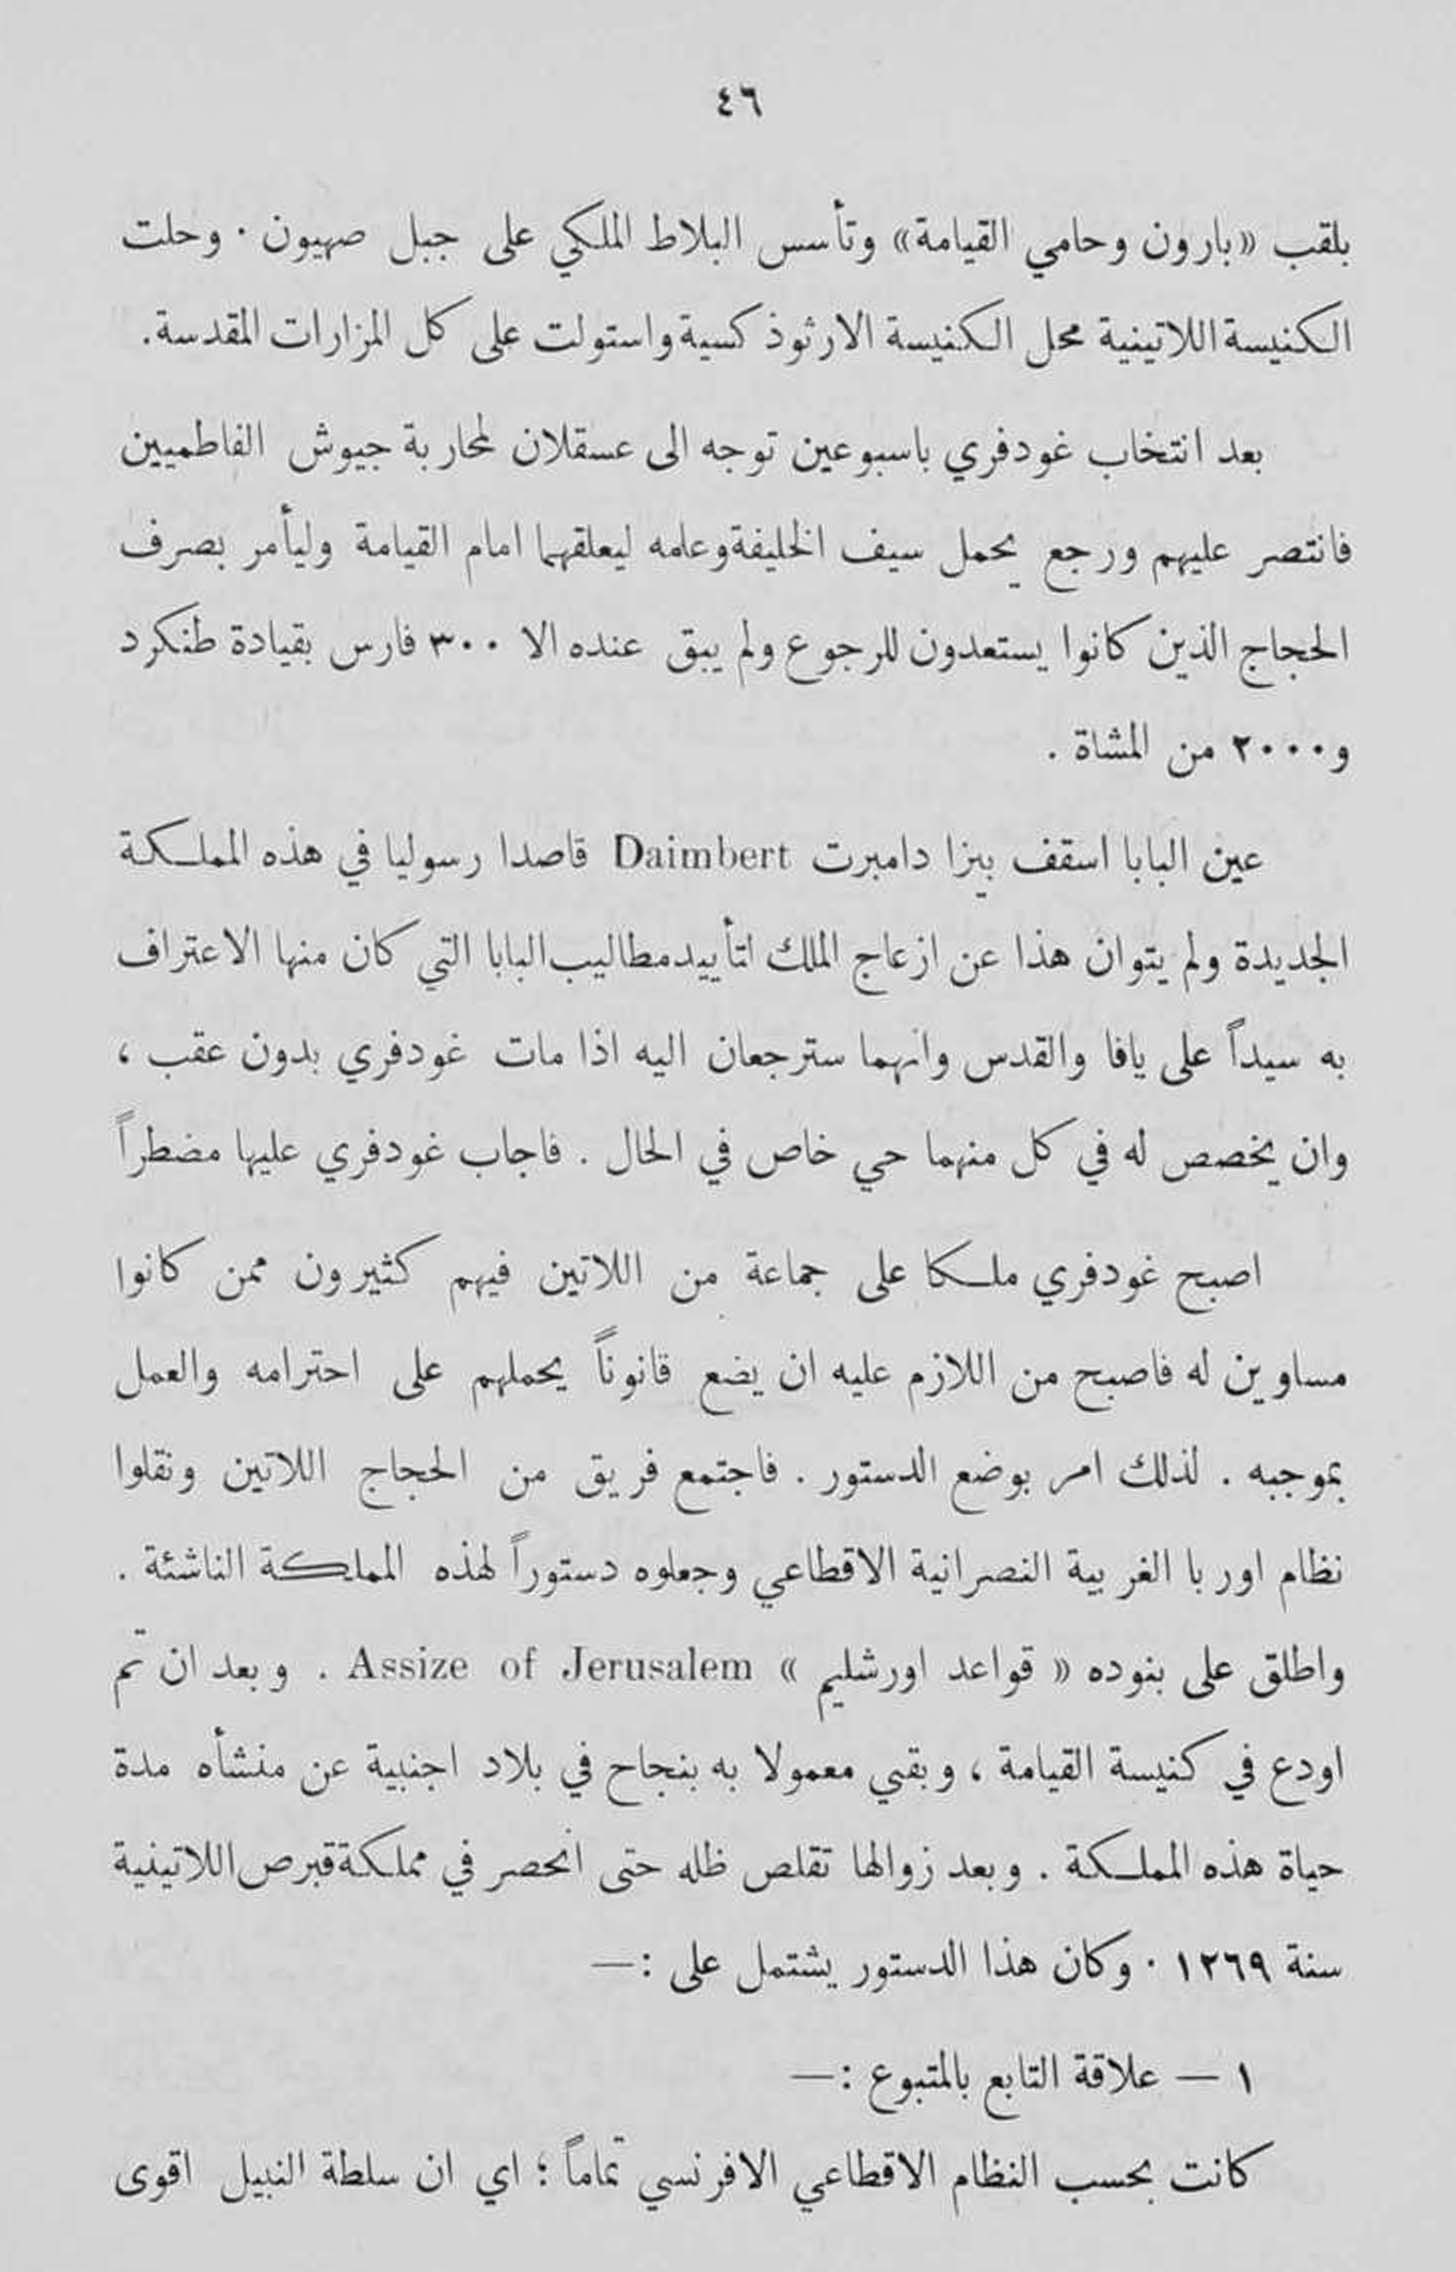 ٤٦
بلقب «بارون وحامي القيامة» وتأسس البلاط الملكي على جبل صهيون . وحلت
الكنيسة اللاتينية محل الكنيسة الارثوذكسية واستولت على كل المزارات المقدسة.
بعد انتخاب غودفري باسبوعين توجه الى عسقلان لمحاربة جيوش الفاطميين
فانتصر عليهم ورجع يحمل سيف الخليفة وعلمه ليعلقهما امام القيامة وليأمر بصرف
الحجاج الذين كانوا يستعدون للرجوع ولم يبق عنده الا ٣٠٠ فارس بقيادة طنكرد
و٢٠٠٠ من المشاة .
عين البابا اسقف بيزا دامبرت Daimbert قاصدا رسوليا في هذه المملكة
الجديدة ولم يتوان هذا عن ازعاج الملك لتأييد مطاليب البابا التي كان منها الاعتراف
به سيداً على يافا والقدس وانهما سترجعان اليه اذا مات غودفري بدون عقب ،
وان يخصص له في كل منهما حي خاص في الحال . فاجاب غودفري عليها مضطراً
اصبح غودفري ملكا على جماعة من اللاتين فيهم كثيرون ممن كانوا
مساوين له فاصبح من اللازم عليه ان يضع قانوناً يحملهم على احترامه والعمل
بموجبه . لذلك امر بوضع الدستور . فاجتمع فريق من الحجاج اللاتين ونقلوا
نظام اوربا الغربية النصرانية الاقطاعي وجعلوه دستوراً لهذه المملكة الناشئة .
واطلق على بنوده « قواعد اورشليم » Assize of Jerusalem . وبعد ان تم
اودع في كنيسة القيامة ، وبقي معمولا به بنجاح في بلاد اجنبية عن منشأه مدة
حياة هذه المملكة . وبعد زوالها تقلص ظله حتى انحصر في مملكة قبرص اللاتينية
سنة ١٣٦٩ . وكان هذا الدستور يشتمل على :—
١ — علاقة التابع بالمتبوع :—
كانت بحسب النظام الاقطاعي الافرنسي تماماً ؛ اي ان سلطة النبيل اقوى